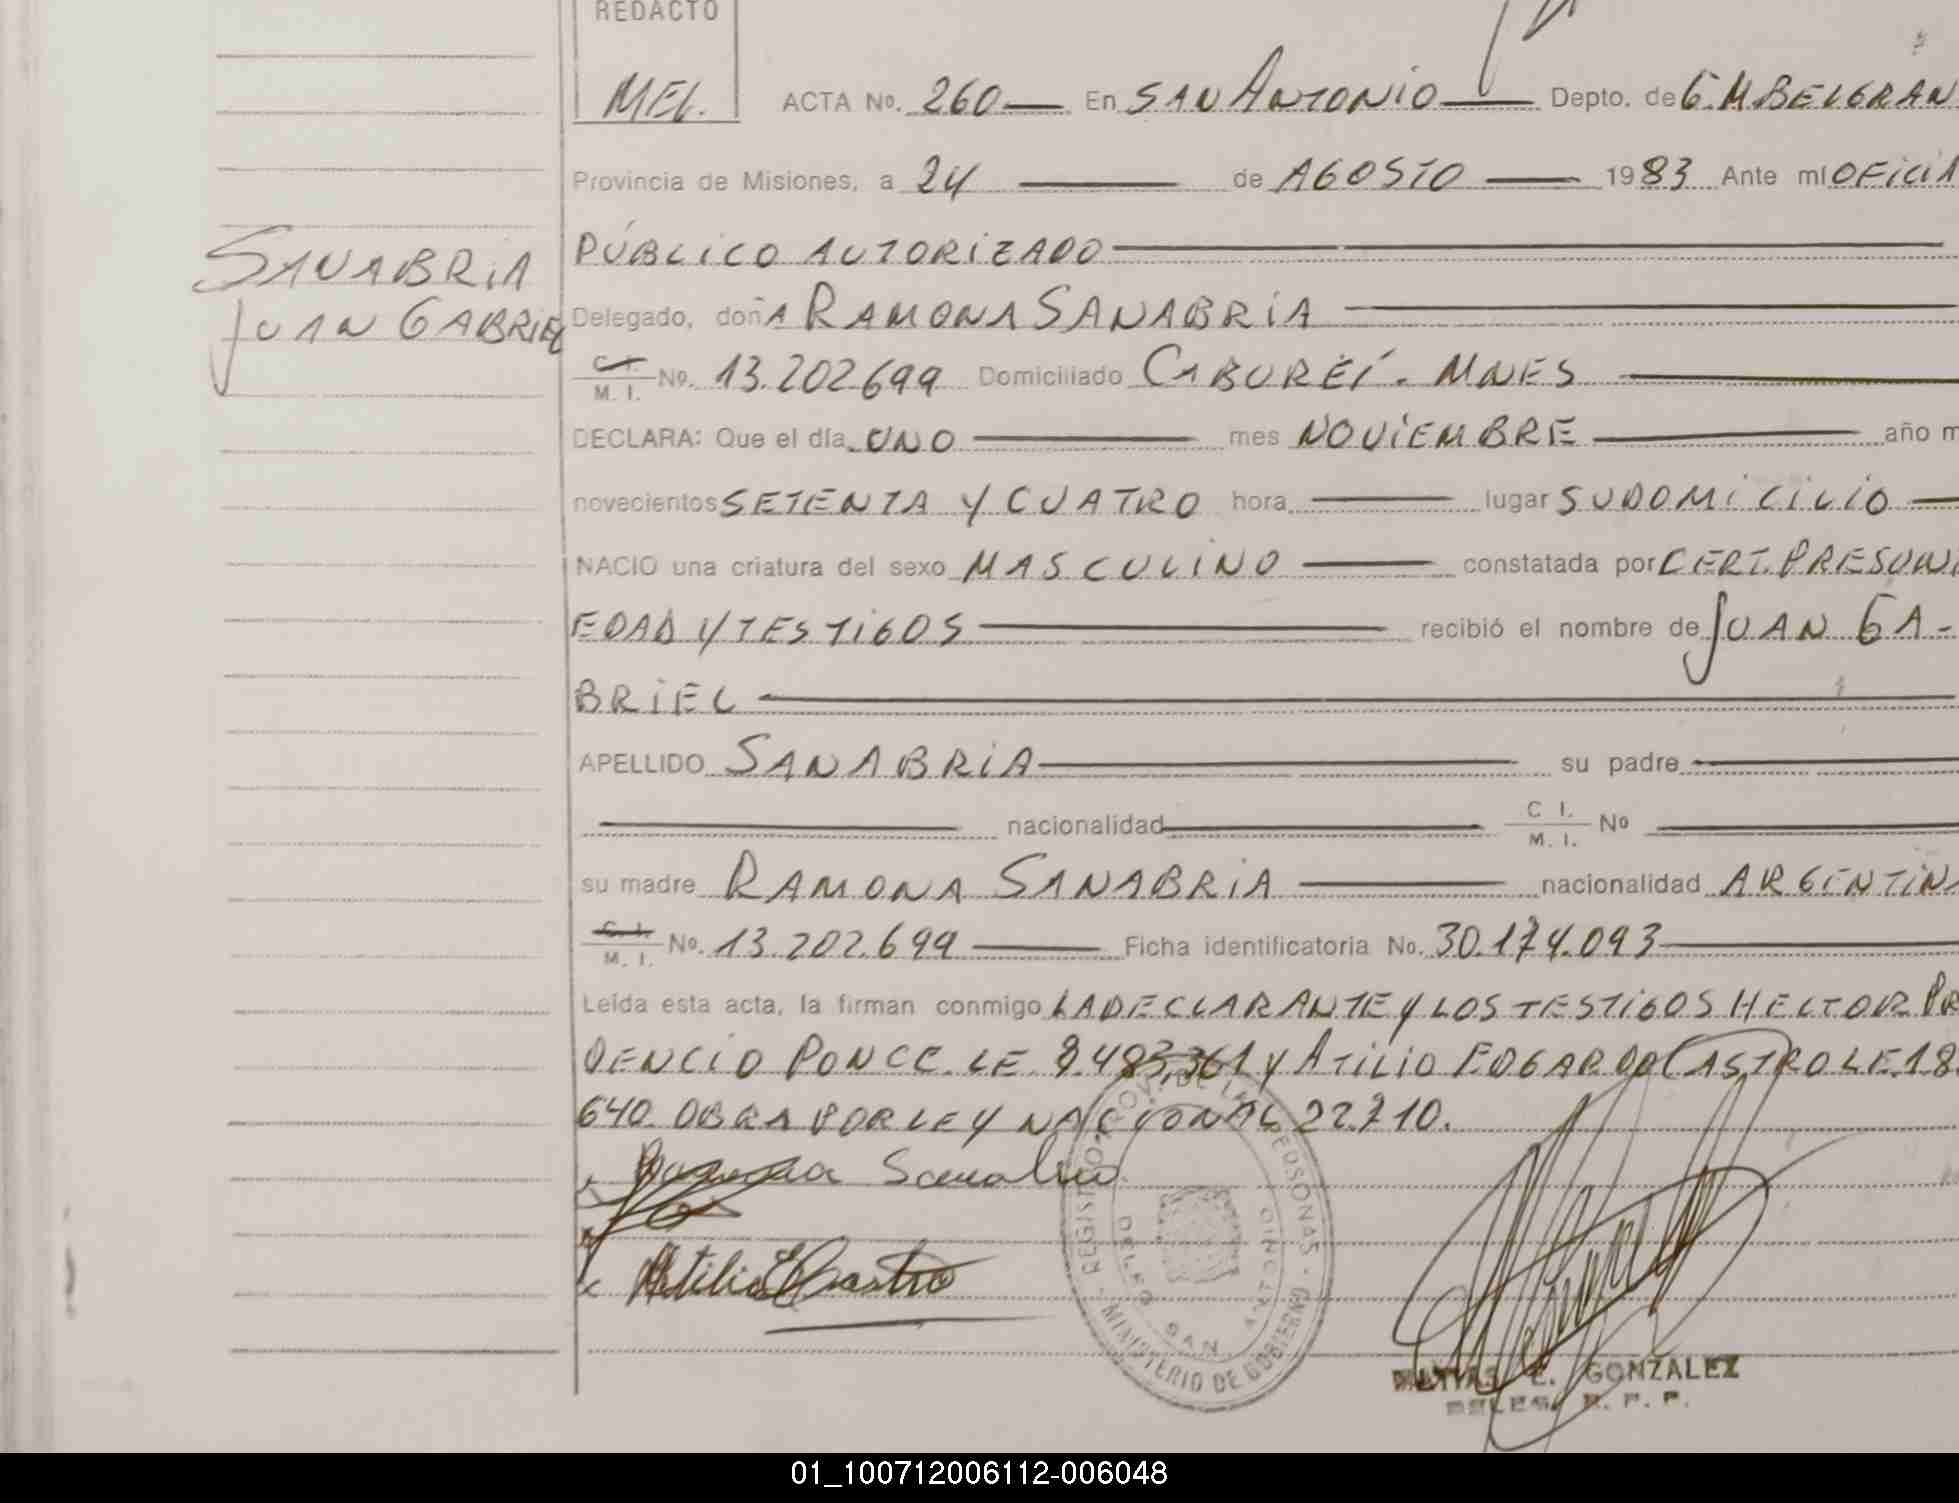 REDACTO
MEL.
ACTA No. 260 En SAN ANTONIO Depto. de G. M. BELGRAN
Provincia de Misiones, a 24 de AGOSTO 1983 Ante mí OFICIA
PÚBLICO AUTORIZADO
SANABRIA
JUAN GABRIEL
Delegado, doñA RAMONA SANABRIA
C. I.
M. I. No. 13.202699 Domiciliado CABUREÍ. MNES
DECLARA: Que el día UNO mes NOVIEMBRE año m
novecientos SETENTA Y CUATRO hora lugar SU DOMICILIO
NACIO una criatura del sexo MASCULINO constatada por CERT. PRESUN
EDAD Y TESTIGOS recibió el nombre de JUAN GA-
BRIEL
APELLIDO SANABRIA su padre
nacionalidad C I. M. I. No
su madre RAMONA SANABRIA nacionalidad ARGENTINA
C. I.
M. I. No. 13.202.699 Ficha identificatoria No. 30.174.093
Leída esta acta, la firman conmigo LA DECLARANTE Y LOS TESTIGOS HECTOR PR
DENCIO PONCE. LE 8.483.361 Y ATILIO EDGARDO CASTRO LE 18.
640. OBRA POR LEY NACIONAL 22.710.
Ramona Sanabria
Atilio E Castro
REGISTRO PROV. DE LAS PERSONAS - MINISTERIO DE GOBIERNO
DELEG. SAN ANTONIO
MATIAS E. GONZALEZ
DELEG. R. P. P.
01_100712006112-006048